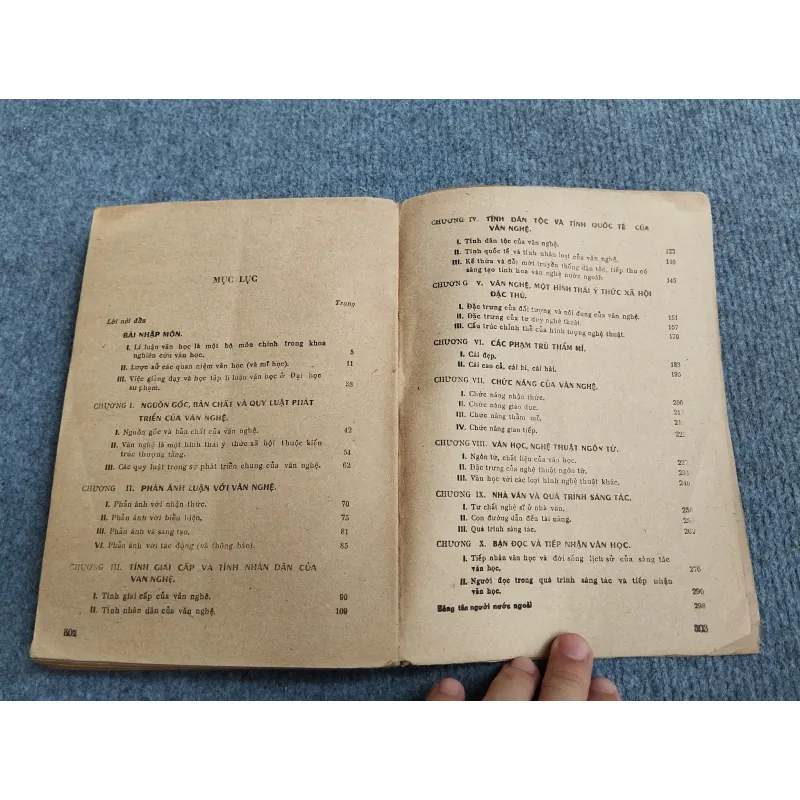 MỤC LỰC
Trang
Lời nói đầu
BÀI NHẬP MÔN.
I. Lí luận văn học là một bộ môn chính trong khoa
nghiên cứu văn học. 5
II. Lược sử các quan niệm văn học (và mĩ học). 11
III. Việc giảng dạy và học tập lí luận văn học ở Đại học
sư phạm. 38
CHƯƠNG I. NGUỒN GỐC, BẢN CHẤT VÀ QUY LUẬT PHÁT
TRIỂN CỦA VĂN NGHỆ.
I. Nguồn gốc và bản chất của văn nghệ. 42
II. Văn nghệ là một hình thái ý thức xã hội thuộc kiến
trúc thượng tầng. 54
III. Các quy luật trong sự phát triển chung của văn nghệ. 62
CHƯƠNG II. PHẢN ÁNH LUẬN VỚI VĂN NGHỆ.
I. Phản ánh với nhận thức. 70
II. Phản ánh với biểu hiện. 75
III. Phản ánh và sáng tạo. 81
VI. Phản ánh với tác động (và thông báo). 85
CHƯƠNG III. TÍNH GIAI CẤP VÀ TÍNH NHÂN DÂN CỦA
VĂN NGHỆ.
I. Tính giai cấp của văn nghệ. 90
II. Tính nhân dân của văn nghệ. 109
302
CHƯƠNG IV. TÍNH DÂN TỘC VÀ TÍNH QUỐC TẾ CỦA
VĂN NGHỆ.
I. Tính dân tộc của văn nghệ. 123
II. Tính quốc tế và tính nhân loại của văn nghệ. 140
III. Kế thừa và đổi mới truyền thống dân tộc, tiếp thu có
sáng tạo tinh hoa văn nghệ nước ngoài 145
CHƯƠNG V. VĂN NGHỆ, MỘT HÌNH THÁI Ý THỨC XÃ HỘI
ĐẶC THÙ.
I. Đặc trưng của đối tượng và nội dung của văn nghệ. 151
II. Đặc trưng của tư duy nghệ thuật. 157
III. Cấu trúc chỉnh thể của hình tượng nghệ thuật. 170
CHƯƠNG VI. CÁC PHẠM TRÙ THẨM MĨ.
I. Cái đẹp. 183
II. Cái cao cả, cái bi, cái hài. 195
CHƯƠNG VII. CHỨC NĂNG CỦA VĂN NGHỆ.
I. Chức năng nhận thức.
II. Chức năng giáo dục.
III. Chức năng thẩm mĩ.
IV. Chức năng giao tiếp.
CHƯƠNG VIII. VĂN HỌC, NGHỆ THUẬT NGÔN TỪ.
I. Ngôn từ, chất liệu của văn học.
II. Đặc trưng của nghệ thuật ngôn từ. 231
III. Văn học với các loại hình nghệ thuật khác. 240
CHƯƠNG IX. NHÀ VĂN VÀ QUÁ TRÌNH SÁNG TÁC.
I. Tư chất nghệ sĩ ở nhà văn.
II. Con đường dẫn đến tài năng.
III. Quá trình sáng tác. 262
CHƯƠNG X. BẠN ĐỌC VÀ TIẾP NHẬN VĂN HỌC.
I. Tiếp nhận văn học và đời sống lịch sử của sáng tác
văn học. 276
II. Người đọc trong quá trình sáng tác và tiếp nhận
văn học. 290
Bảng tên người nước ngoài 298
303